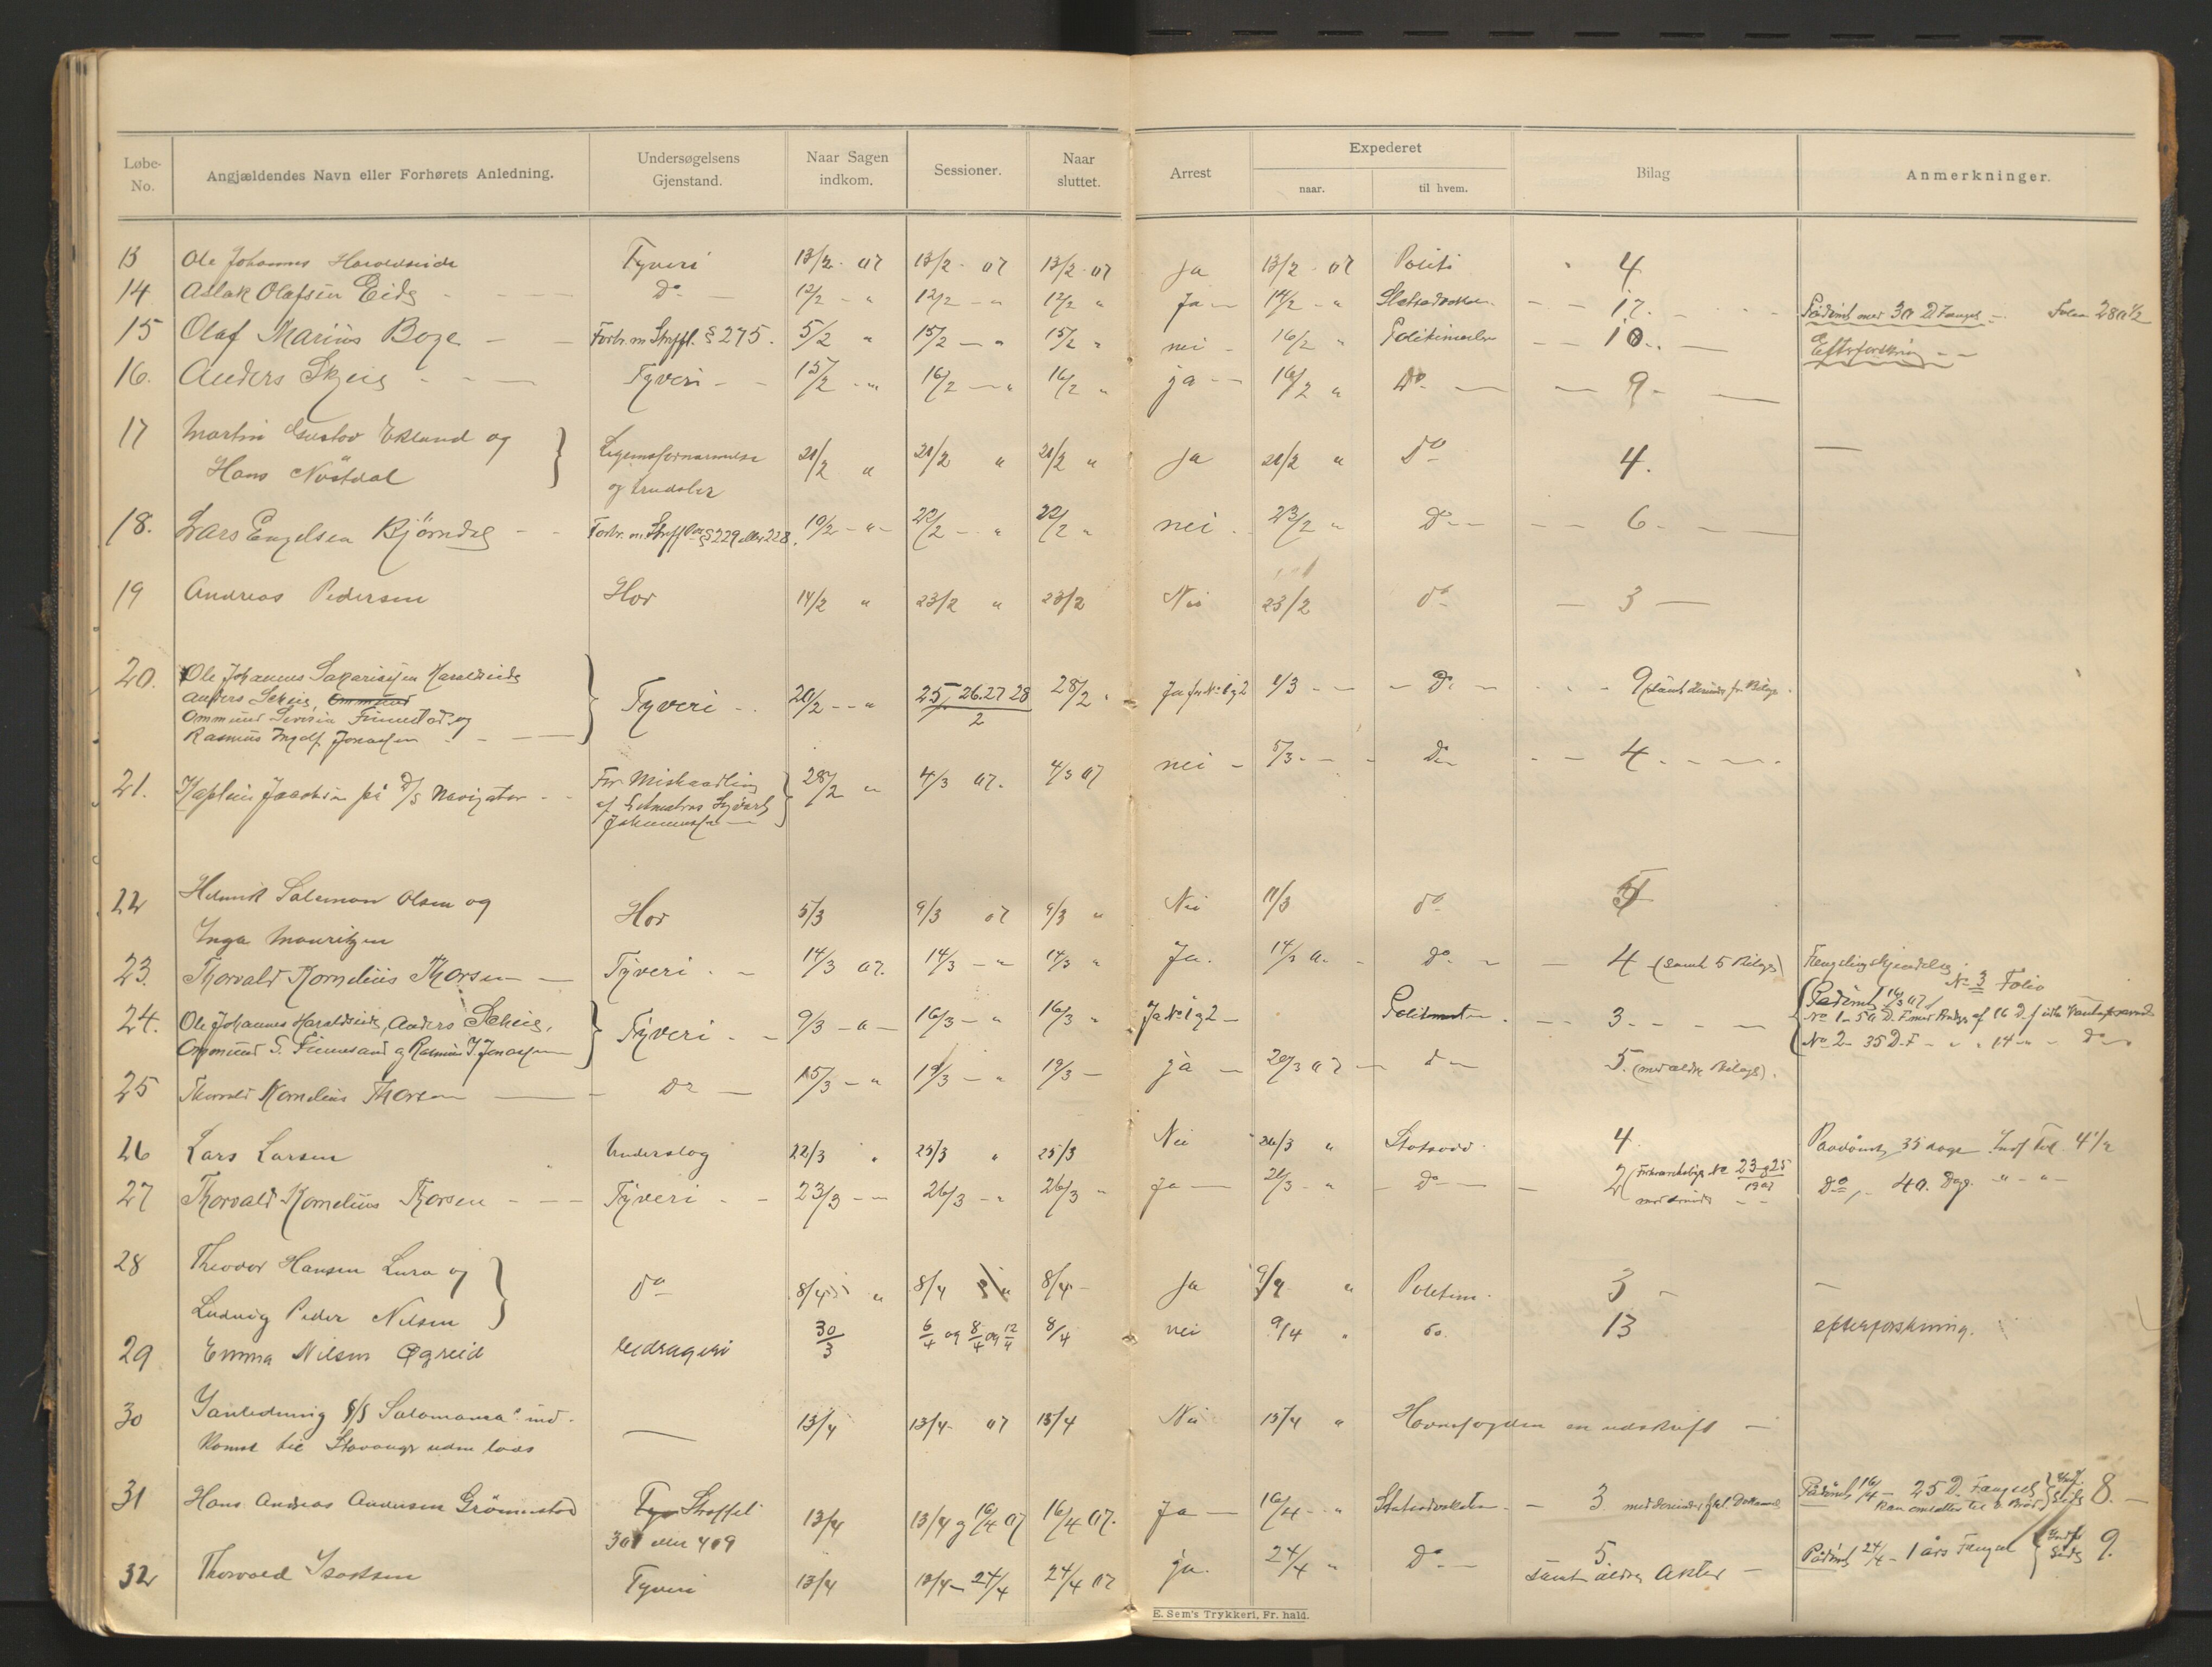 Løbe- No. | Angjældendes Navn eller Forhørets Anledning. | Undersøgelsens Gjenstand. | Naar Sagen indkom. | Sessioner. | Naar sluttet. | Arrest | Expederet naar. | til hvem. | Bilag | Anmerkninger.
13 Ole Johannes Haraldseide Tyveri 13/2 - 07 13/2 - 07 13/2 - 07 Ja 13/2 - 07 Politi 4
14 Aslak Olafsen Eide Do 12/2 - " 12/2 - " 12/2 " Ja 14/2 - " 17.
Pådømt med 30 D Fængs
15 Olaf Marius Boge Forbr. m Straffl. § 275. 5/2 " 15/2 - " 15/2 " nei 16/2 " Politimester 10.
Efterforskning
16. Anders Skeie Tyveri 15/2 - " 16/2 - " 16/2 " ja 16/2 " Do 9
17 Martin Gustav Eklund og Legemsfornærmelse 21/2 " 21/2 " 21/2 " Ja 21/2 " do 4.
Hans Nöstdal og trudsler
18. Lars Engelsen Björndal Forbr. m. Straffl. § 229 eller 228. 19/2 - " - 22/2 - " 22/2 " nei 23/2 " Do 6
19 Andreas Pedersen Hor 14/2 " 23/2 " 23/2 Nei 23/2 do 3
20. Ole Johannes Sakariassen Haraldseide
Anders Skeie, Ommund
Ommund Severin Finnesand og Tyveri 20/2 - " 25, 26. 27 28 / 2 28/2 " Ja for No 1 og 2 1/3 Do 9 (samt
Rasmus Ingolf Jonassen
21. Kaptein Jacobsen på D/S Navigator For Mishandling 28/2 " 4/3 07. 4/3 07 nei 5/3 Do 4
af
Johannessen
22 Henrik Salemon Olsen og Hor 5/3 9/3 07 9/3 " Nei 11/3 do
Inga Mauritzen
23. Thorvald Kornelius Thorsen Tyveri 14/3 07. 14/3 - " 14/3 " Ja. 14/3 do 4 (samt 5 Bilage) Fængslingskjendelse
No 3 Folio
24. Ole Johannes Haraldseide, Anders Skeie, Tyveri 9/3 - " - 16/3 - " 16/3 " Ja No 1 og 2 3. Pådømt 16/3 07
Ommund S. Finnesand og Rasmus I. Jonassen No 1 - 50 D. F. med Fradrag af 16 D. f
No 2 - 35 D. F - " - 14 - " - Do
25 Thorvald Kornelius Thorsen Do 15/3 - " 19/3 - " 19/3 ja 20/3 07 do 5. (med ældre Bilage).
26 Lars Larsen Underslag 22/3 " 25/3 " 25/3 Nei 26/3 " Statsadv 4 Paadømt 35 dage
27 Thorvald Kornelius Thorsen Tyveri 23/3 - " 26/3 - " 26/3 " Ja 26/3 - " Do 2 No 23 og 25 / 1907 Do, - 40. Dage " - " -
28 Theodor Hansen Lura og do 8/4 " 8/4 8/4 Ja 9/4 " Politim. 3
Ludvig Peder Nilsen
29 Emma Nilsen Øgreid bedrageri 30/3 6/4 og 8/4 og 12/4 8/4 nei 9/4 " do. 13 efterforskning.
30 I anledning S/S "Salamanca"s ind- 13/4 13/4 07 13/4 Nei 15/4 " Havnefogden en udskrift
komst til Stavanger uden lods
31 Hans Andreas Andersen Grönnestad Tyv Straffel 13/4 13/4 og 16/4 07 16/4 07. Ja 16/4 - " Statsadvokaten 3 Pådømt 16/4 - 25 D. Fængsel Indf. Side 8.
301 eller 409
32 Thorvald Isaksen Tyveri 13/4 13/4 - 24/4 24/4 07 ja. 24/4 " Do 5. Pådømt 24/4 - 1 års Fængsel Indf. Side 9.
samt ældre Akter
E. Sem's Trykkeri, Fr. hald.